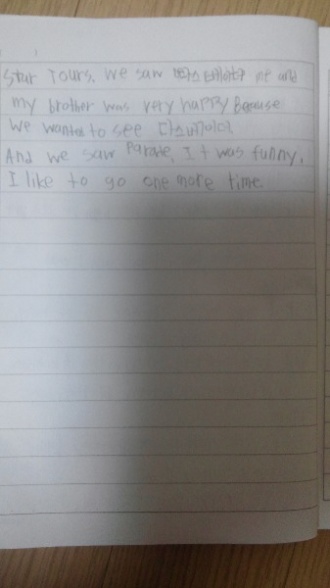 Star Tours. We saw 따스베이더 me and
my brother was very happy Because
We wanted to see 다스베이더
And we saw Parade, It was funny.
I like to go one more time.